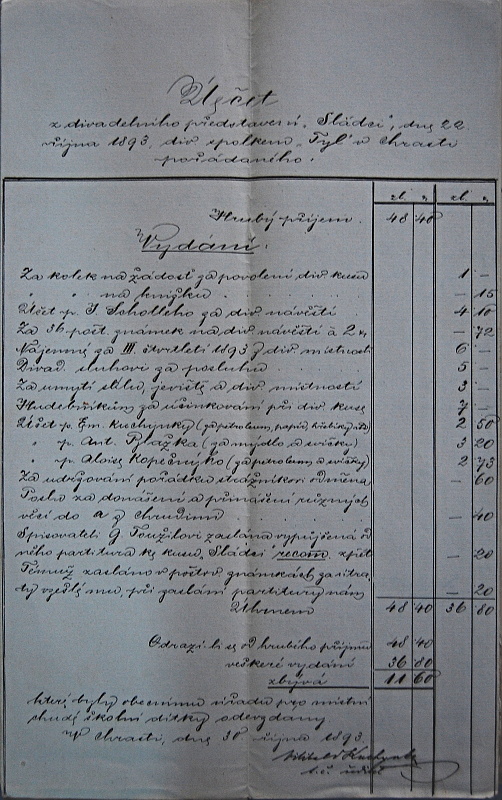 Účet
z divadelního představení „Sládci“, dne 22.
října 1893, div. spolkem „Tyl“ v Chrasti
pořádaného.
zl. zl.
Hrubý příjem. 48 40
Vydání.
Za kolek na žádost za povolení div. kusu 1 —
" " na knížku " — 15
Účet p. J. Scholleho za div. návěstí 4 10
Za 36 pošt. známek na div. návěstí à 2 — 72
Nájemné za III. čtvrtletí 1893 z div. místnosti 6 —
Divad. sluhovi za posluhu 5 —
Za umytí sálu, jeviště a div. místností 3 —
Hudebníkům za účinkování při div. kuse 7 —
Účet p. Em. Kuchynky (za petroleum, papír, 2 50
" p. Ant. Plažka (za mýdlo a svíčky) 3 20
" p. Aloise Kopečný (za petroleum a svíčky) 2 73
Za udržování pořádku strážníkovi odměna — 60
Poslu za donášení a přinášení různých
věcí do a z Chrudimi — 40
Spisovateli G. Toužilovi zaslána vypůjčená od
něho partitura ku kusu „Sládci“ recom. zpět — 20
Témuž zasláno v poštov. známkách za
vzešlé mu, při zaslání partitury nám — 20
Úhrnem 48 40 36 80
Odrazí-li se od hrubého příjmu 48 40
veškeré vydání 36 80
zbývá 11 60
které byly obecnímu úřadu pro místní
chudé školní dítky odevzdány
V Chrasti, dne 30. října 1893.
Kuchynka
t. č. účetní